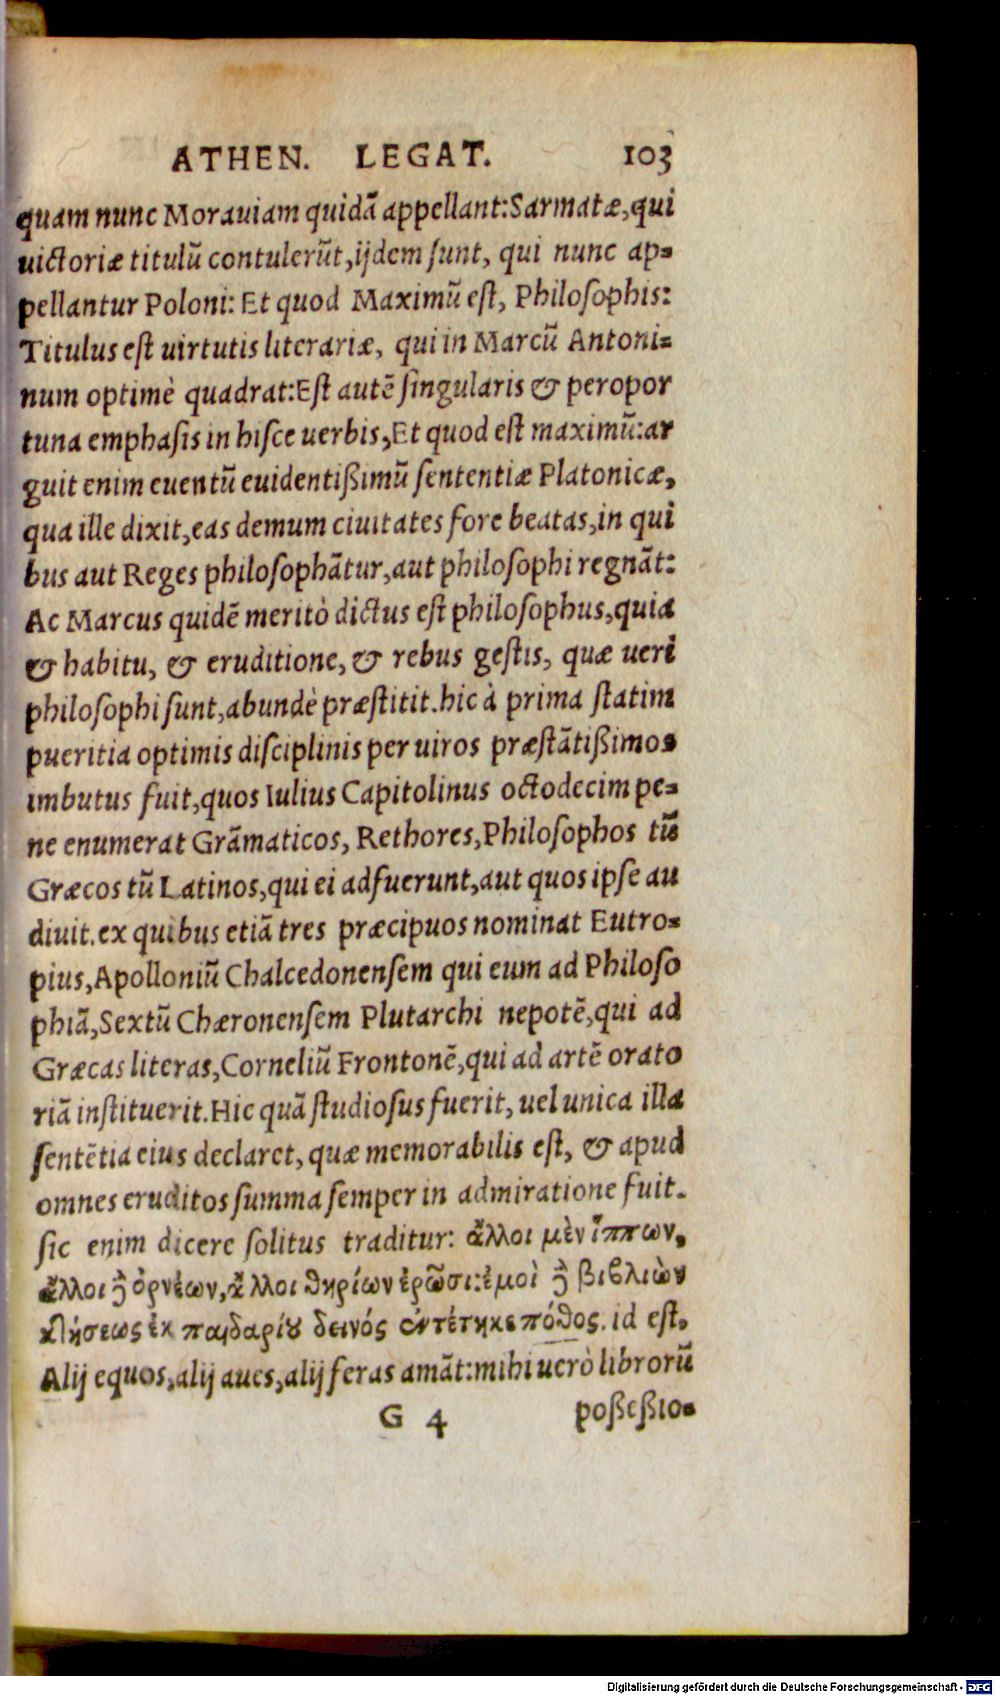 ATHEN. LEGAT. 103
quam nunc Morauiam quidã appellant: Sarmatæ, qui
uictoriæ titulũ contulerũt, ijdem sunt, qui nunc ap-
pellantur Poloni: Et quod Maximũ est, Philosophis:
Titulus est uirtutis literariæ, qui in Marcũ Antoni-
num optimè quadrat: Est autẽ singularis & peropor
tuna emphasis in hisce uerbis, Et quod est maximũ: ar
guit enim euentũ euidentißimũ sententiæ Platonicæ,
qua ille dixit, eas demum ciuitates fore beatas, in qui
bus aut Reges philosophãtur, aut philosophi regnãt:
Ac Marcus quidẽ meritò dictus est philosophus, quia
& habitu, & eruditione, & rebus gestis, quæ ueri
philosophi sunt, abundè præstitit. hic à prima statim
pueritia optimis disciplinis per uiros præstãtißimos
imbutus fuit, quos Iulius Capitolinus octodecim pe-
ne enumerat Grãmaticos, Rethores, Philosophos tũ
Græcos tũ Latinos, qui ei adfuerunt, aut quos ipse au
diuit. ex quibus etiã tres præcipuos nominat Eutro-
pius, Apolloniũ Chalcedonensem qui eum ad Philoso
phiã, Sextũ Chæronensem Plutarchi nepotẽ, qui ad
Græcas literas, Corneliũ Frontonẽ, qui ad artẽ orato
riã instituerit. Hic quã studiosus fuerit, uel unica illa
sentẽtia eius declaret, quæ memorabilis est, & apud
omnes eruditos summa semper in admiratione fuit.
sic enim dicere solitus traditur: ἄλλοι μὲν ἵππων,
ἄλλοι δὲ ὀρνέων, ἄλλοι θηρίων ἐρῶσι: ἐμοὶ δὲ βιβλιὼν
κλήσεως ἐκ παιδαρίου δεινός ἐντέτηκε πόθος. id est,
Alij equos, alij aues, alij feras amãt: mihi uerò librorũ
G 4 poßeßio-
Digitalisierung gefördert durch die Deutsche Forschungsgemeinschaft - DFG